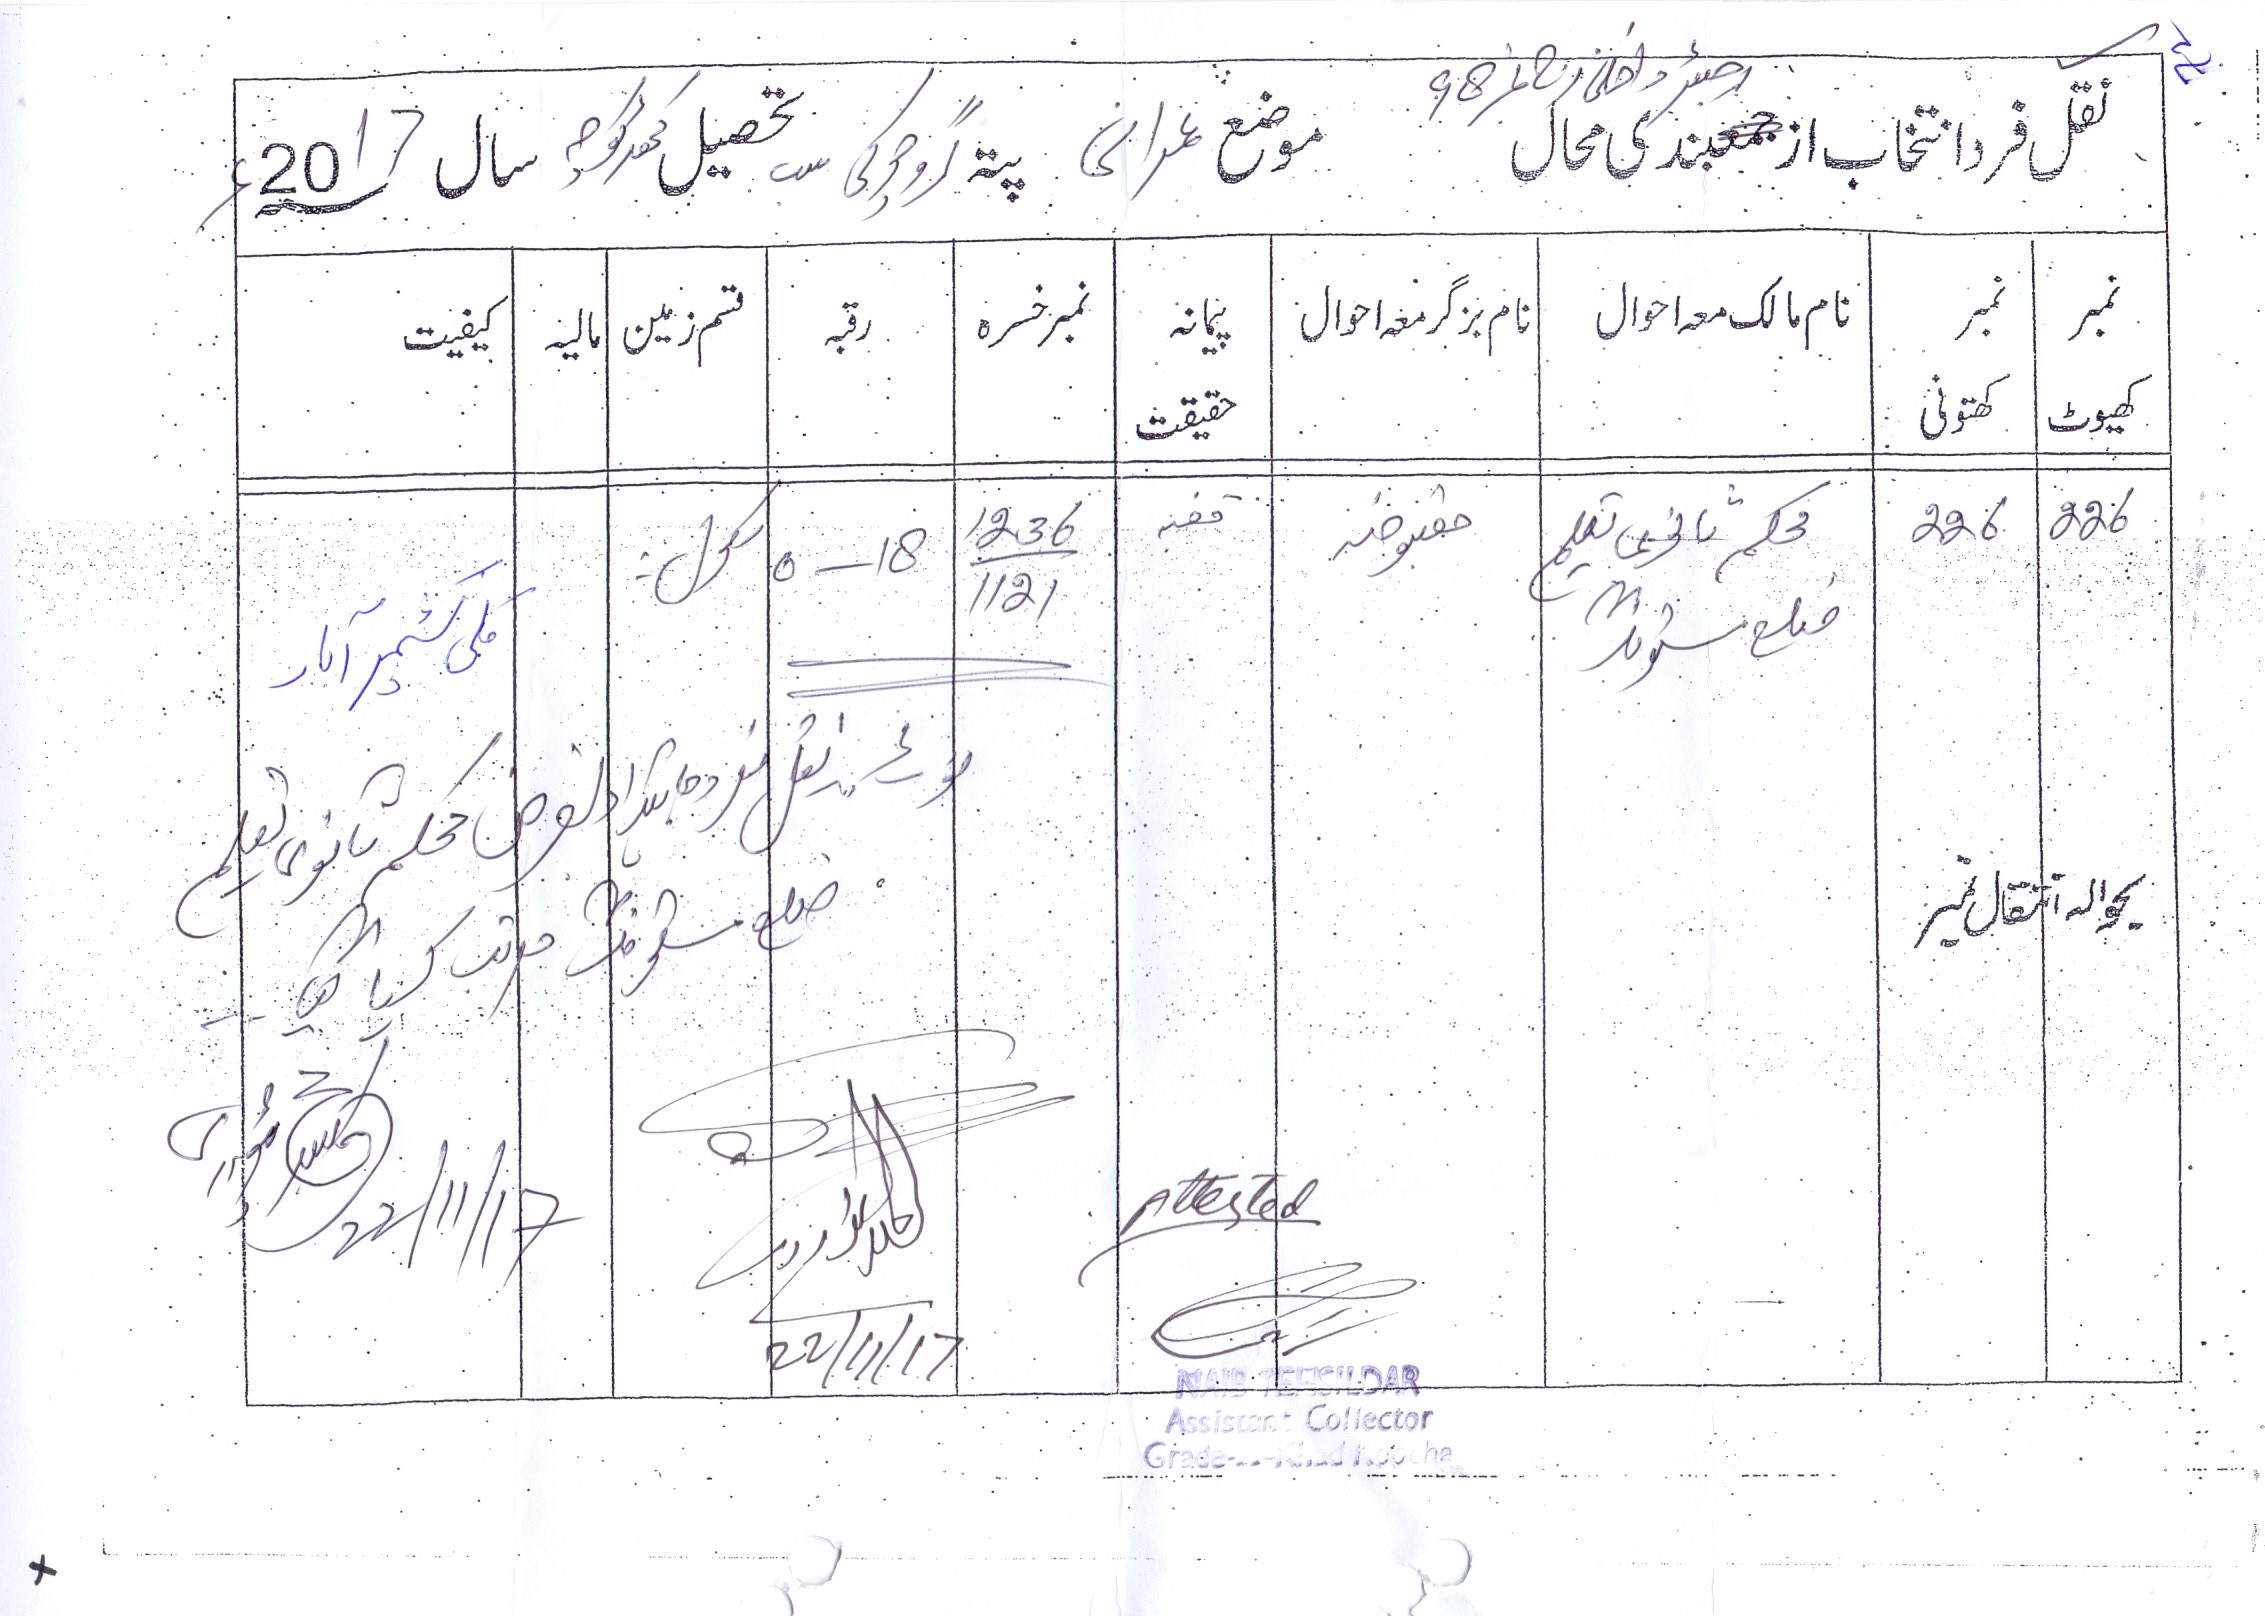 رجسٹر داخلخارج نمبر 98
نقل فرد انتخاب از جمعبندی محال موضع عمرانی پتہ تحصیل کھڈکوچہ سال 2017ء
نمبر کھیوٹ
نمبر کھتونی
نام مالک معہ احوال
نام بزگر معہ احوال
پیمانہ حقیقت
نمبر خسرہ
رقبہ
قسم زمین
مالیہ
کیفیت
226
226
محکمہ ثانوی تعلیم
ضلع مستونگ
مقبوضہ
قبضہ
1236
1121
0—18
سکول
کلی کشمیر آباد
نقل فرد جائیداد بغرض محکمہ ثانوی تعلیم
ضلع مستونگ مرتب کیا گیا
بحوالہ انتقال نمبر
22/11/17
22/11/17
Attested
NAIB TEHSILDAR
Assistant Collector
Grade-II Khad Koocha